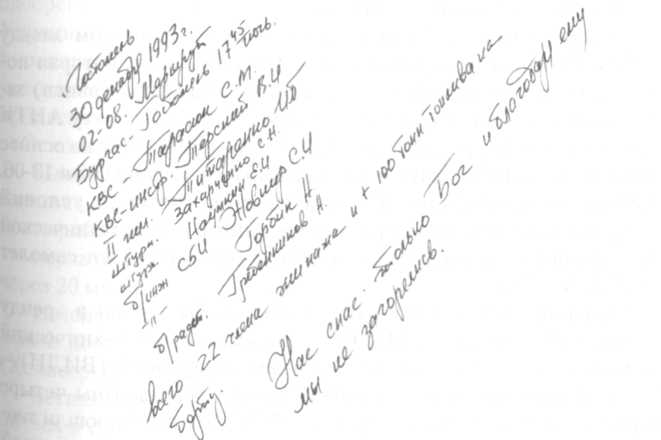 Гостомель
30 декабря 1993г.
02-08. Маршрут
Бургас - Гостомель 17⁴⁵ ночь.
КВС - Тарасюк С.М.
КВС-инстр. Терский В.И
II пил. Титаренко
штурм. Захарченко С.Н.
штурм Наумкин Е.И
б/инж СБИ Жовнир С.И
-"- Горбик Н
б/радст. Гребенников А.
всего 22 члена экипажа и + 100 тонн топлива на
борту.
Нас спас. только Бог и благодаря ему
мы не загорелись.